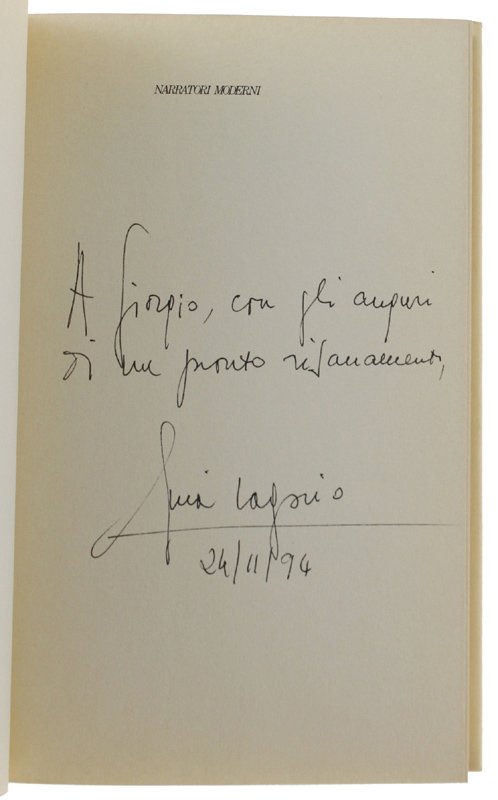 NARRATORI MODERNI
A Giorgio, con gli auguri
di un pronto risanamento,
24/11/94